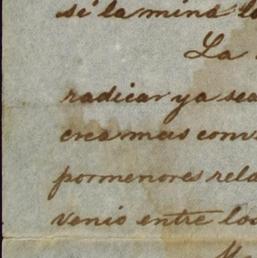 sé la mina
La
radicar ya sea
crea mas conv
pormenores rela
venio entre los